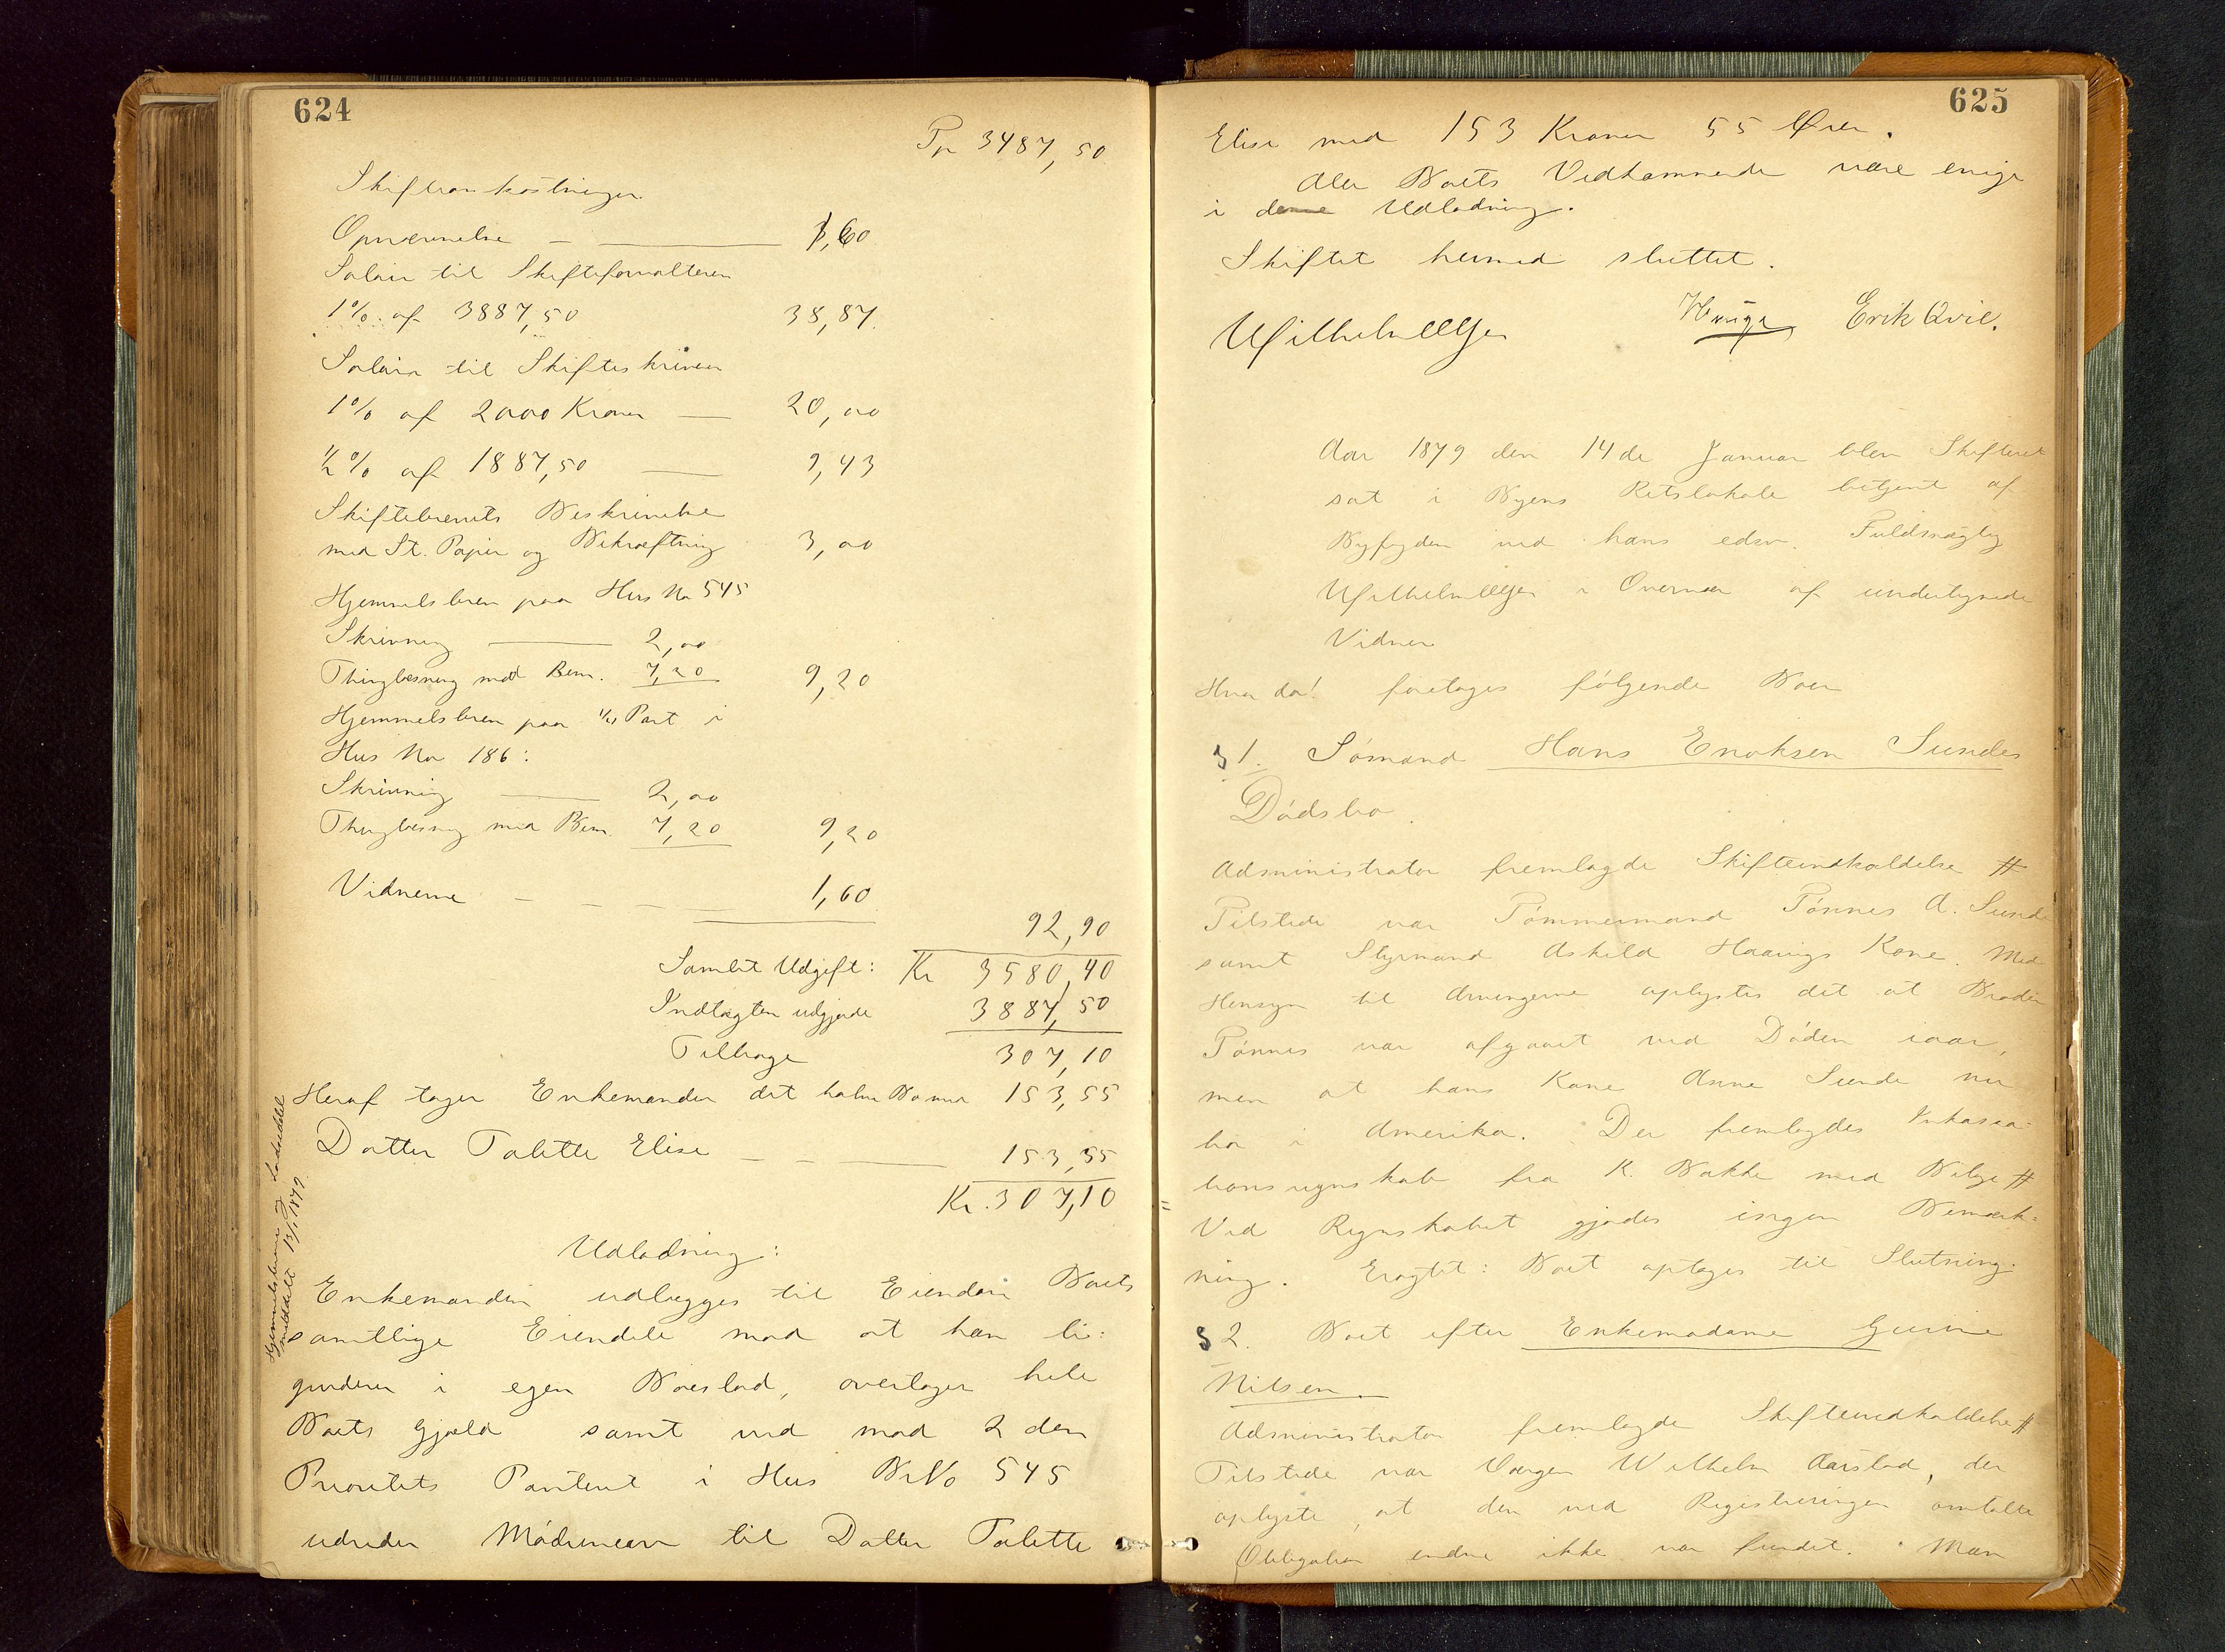 624
Tr 3487,50
Skifteomkostninger
Opnævnelse — 1,60
Salair til Skifteforvalteren
1% af 3887,50 38,87
Salair til Skifteskriver
1% af 2000 Kroner — 20,00
½% af 1887,50 — 9,43
Skiftebrevets Beskrivelse
med St. Papir og Bekræftning 3,00
Hjemmelsbrev paa Hus No 545
Skrivning — 2,00
Thinglæsning med Bem. 7,20 9,20
Hjemmelsbrev paa Part i
Hus No 186:
Skrivning — 2,00
Thinglæsning med Bem. 7,20 9,20
Vidnerne — 1,60
92,90
Samlet Udgift: Kr 3580,40
Indtægten udgjorde 3887,50
Tilbage 307,10
Heraf tager Enkemanden det halve Bo med 153,55
Datter Talette Elise — 153,55
Kr. 307,10
Hjemmelsbreve og Lodseddel
meddelt 13/1 1879
Udlodning:
Enkemanden udlægges til Eiendom Boets
samtlige Eiendele mod at han li-
qviderer i egen Boeslod, overtager hele
Boets Gjæld samt ved mod 2den
Prioritets Panteret i Hus No 545
udreder Mødrenearv til Datter Talette
625
Elise med 153 Kroner 55 Ører.
Alle Boets Vedkommende være enige
i denne Udlodning.
Skiftet hermed sluttet.
Wilhelm Erik Qvil.
Aar 1879 den 14de Januar blev Skifteret
sat i Byens Retslokale betjent af
Byfogden ved hans edsv. Fuldmægtig
Wilhelm i Overvær af undertegnede
Vidner
Hvor da! foretoges følgende Boer
§ 1. Sømand Hans Enoksen Sundes
Dødsbo.
Administrator fremlagde Skifteindkaldelse #
Tilstede var Tømmermand Tønnes A. Sunde
samt Styrmand Askild Haavigs Kone. Med
Hensyn til Arvingerne oplystes det at Broder
Tønnes var afgaaet ved Døden iaar,
men at hans Kone Anne Sunde nu
bor i Amerika. Der fremlagdes Inkassa-
tionsregnskab fra K. Bakke med Bilag #
Ved Regnskabet gjordes ingen Bemærk-
ning. Eragtet: Boet optages til Slutning.
§ 2. Boet efter Enkemadame Gurine
Nilsen.
Administrator fremlagde Skifteindkaldelse #
Tilstede var Værgen Wilhelm Aarstad, der
oplyste, at den ved Registreringen omtalte
Obligation endnu ikke var fundet. Man